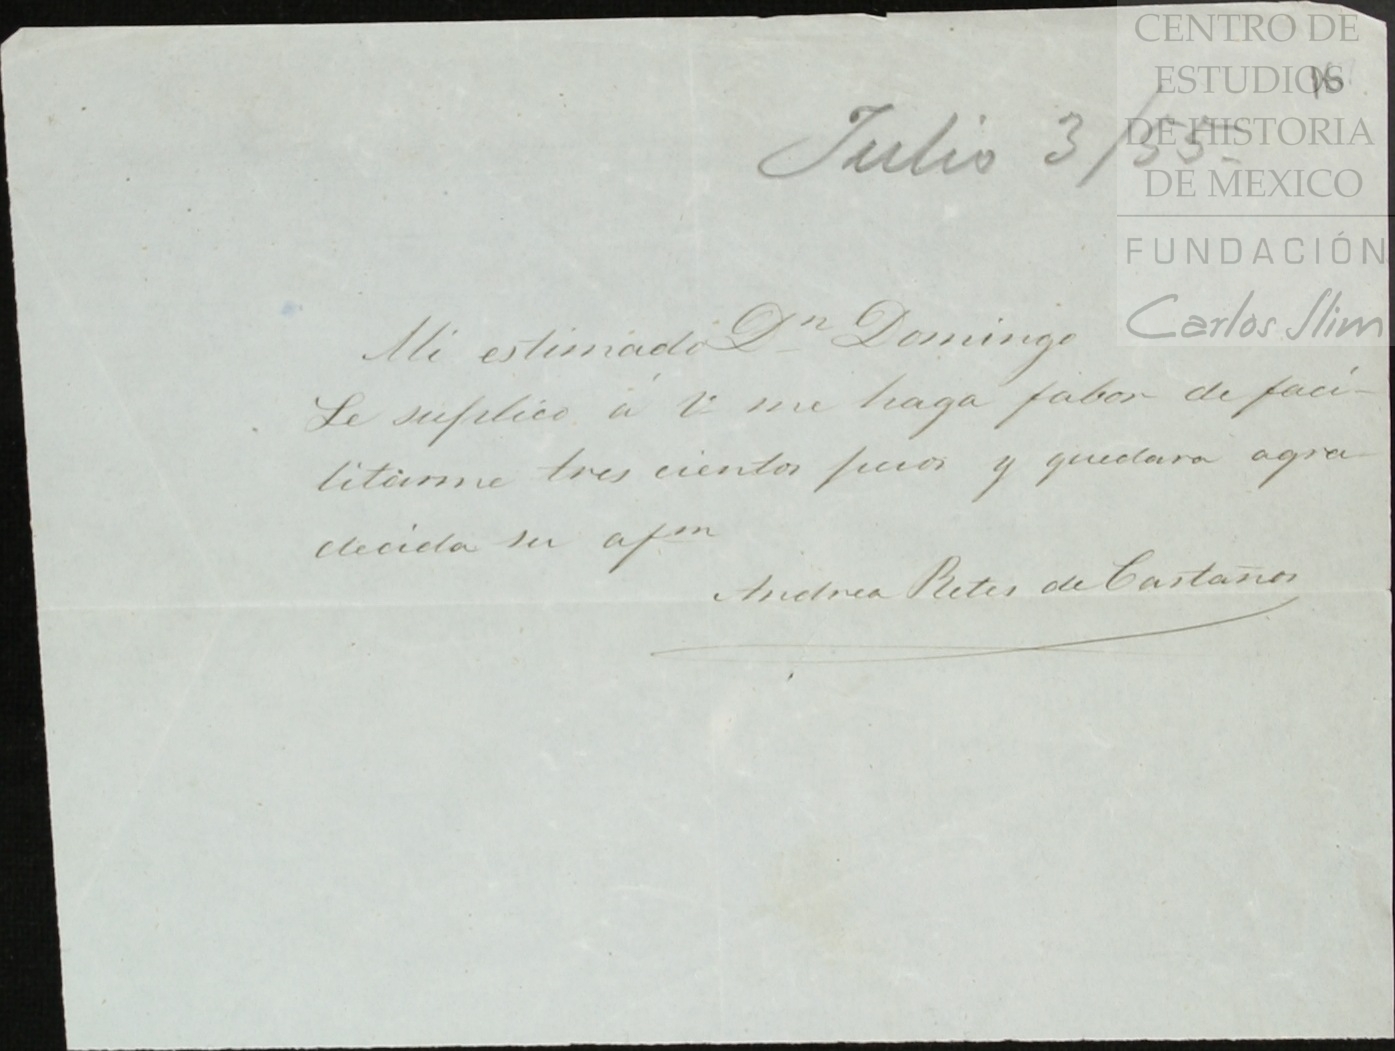 CENTRO DE
ESTUDIOS
DE HISTORIA
DE MEXICO
FUNDACIÓN
Carlos Slim
Julio 3/55-
Mi estimado Dn Domingo
Le suplico á V me haga fabor de faci-
litarme tres cientos pesos y quedara agra-
decida su afm
Andrea Retes de Castaños